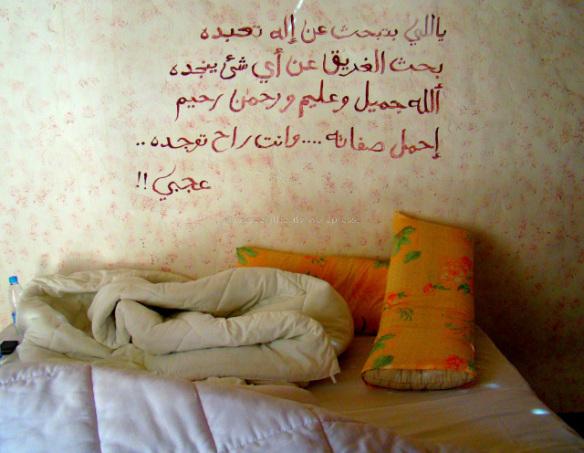 ياللي بتبحث عن إله تعبده
بحث الغريق عن أي شئ ينجده
ألله جميل وعليم ورحمن رحيم
إحمل صفاته .... وانت راح توجده ..
عجبي !!